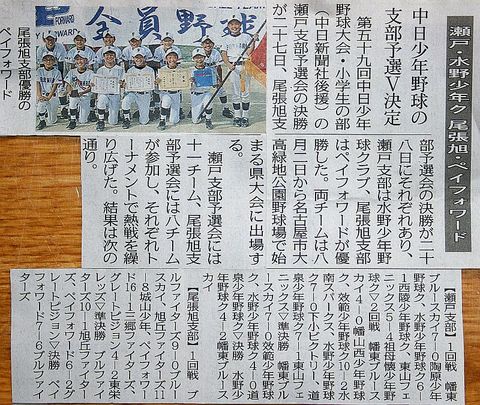 瀬戸・水野少年ク 尾張旭・ペイフォワード
中日少年野球の
支部予選V決定
第五十九回中日少年
野球大会・小学生の部
(中日新聞社後援)の
瀬戸支部予選会の決勝
が二十七日、尾張旭支
部予選会の決勝が二十
八日にそれぞれあり、
瀬戸支部は水野少年野
球クラブ、尾張旭支部
はペイフォワードが優
勝した。両チームは八
月二日から名古屋市大
高緑地公園野球場で始
まる県大会に出場す
る。
瀬戸支部予選会には
十一チーム、尾張旭支
部予選会には八チーム
が参加し、それぞれト
ーナメントで熱戦を繰
り広げた。結果は次の
通り。
FORWARD
全員野球
尾張旭支部優勝の
ペイフォワード
【瀬戸支部】1回戦 幡東
ブルースカイ7-0陶原少年
野球ク、水野少年野球ク6-
1西陵少年野球ク、東山フェ
ニックス5-4祖母懐少年野
球ク▽2回戦 幡東ブルース
カイ4-0幡山西少年野球
ク、效範少年野球ク10-2水
南スパークス、水野少年野球
ク7-0下小ビクトリー、道
泉少年野球ク7-1東山フェ
ニックス▽準決勝 幡東ブル
ースカイ7-0效範少年野球
ク、水野少年野球ク4-0道
泉少年野球ク▽決勝 水野少
年野球ク4-2幡東ブルース
カイ
【尾張旭支部】1回戦 ブ
ルファイターズ9-0ブルー
スカイ、旭丘ファイターズ11
-8城山少年、ペイフォワー
ド16-1三郷ファイターズ、
グレートビジョン4-2東栄
レッズ▽準決勝 ブルファイ
ターズ10-1旭丘ファイター
ズ、ペイフォワード6-2グ
レートビジョン▽決勝 ペイ
フォワード7-6ブルファイ
ターズ